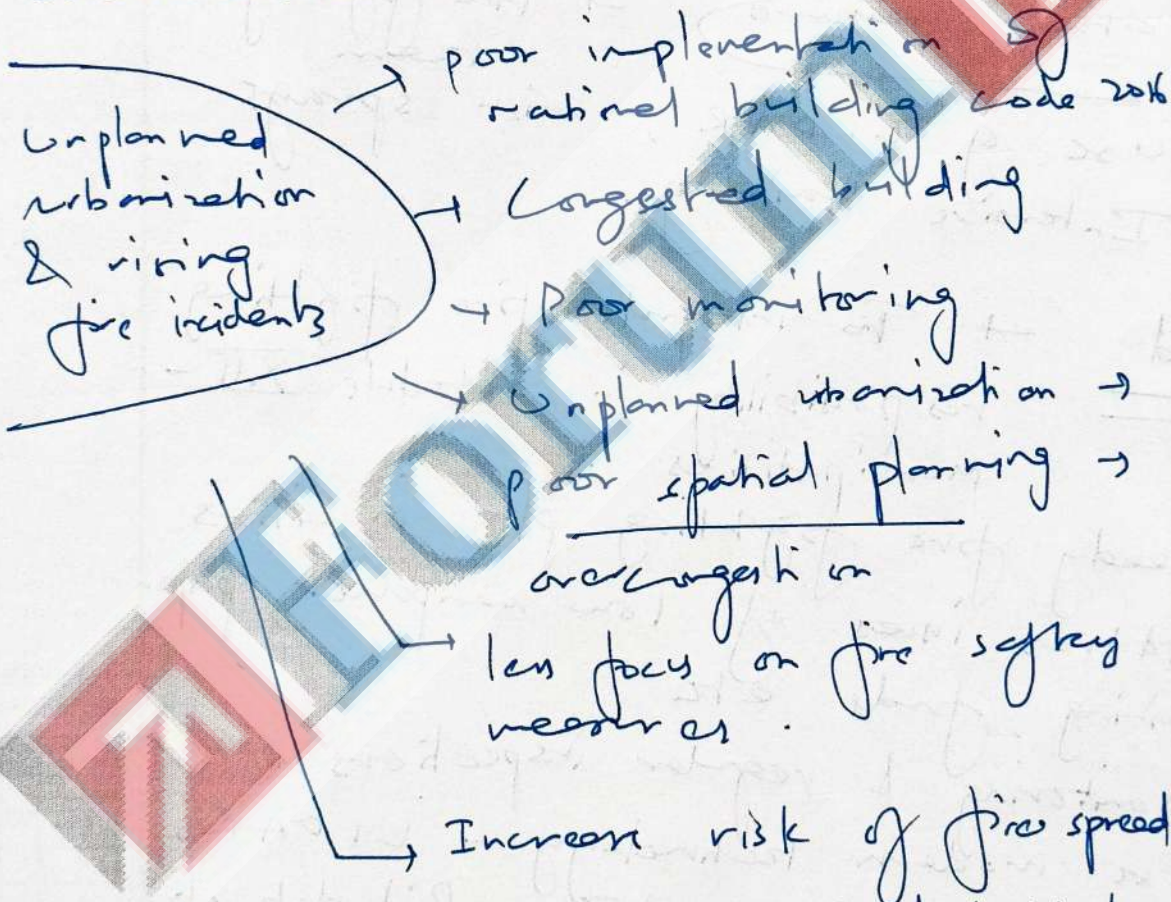 Unplanned
urbanization
& rising
fire incidents
poor implementation of
national building code 2016
Congested building
Poor monitoring
Unplanned urbanization →
poor spatial planning →
overcongestion
less focus on fire saftey
measures.
Increase risk of fire spread
Forum